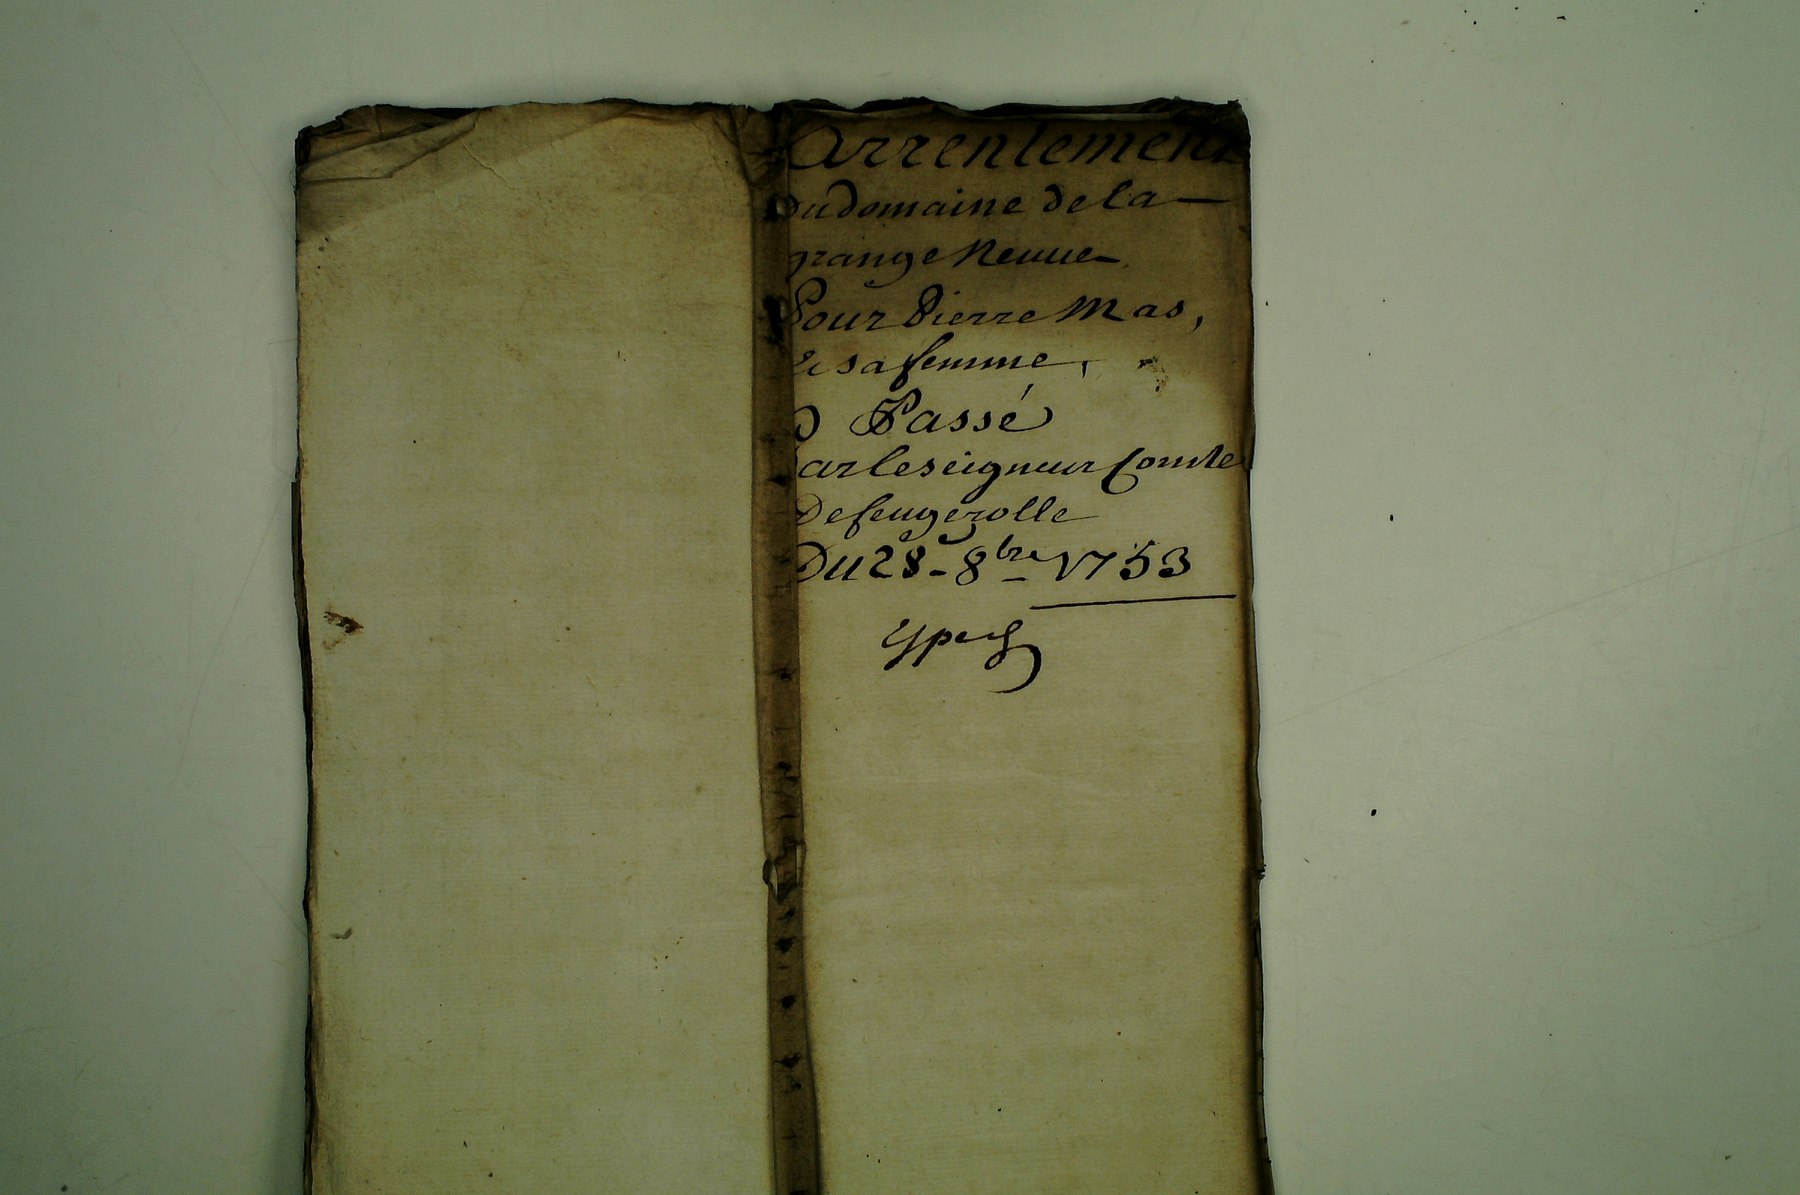 arrentement
Du domaine de la
grange Neuue
Pour Pierre Mas,
& sa femme,
Passé
par le seigneur Comte
De feugerolle
Du 28 - 8bre 1753